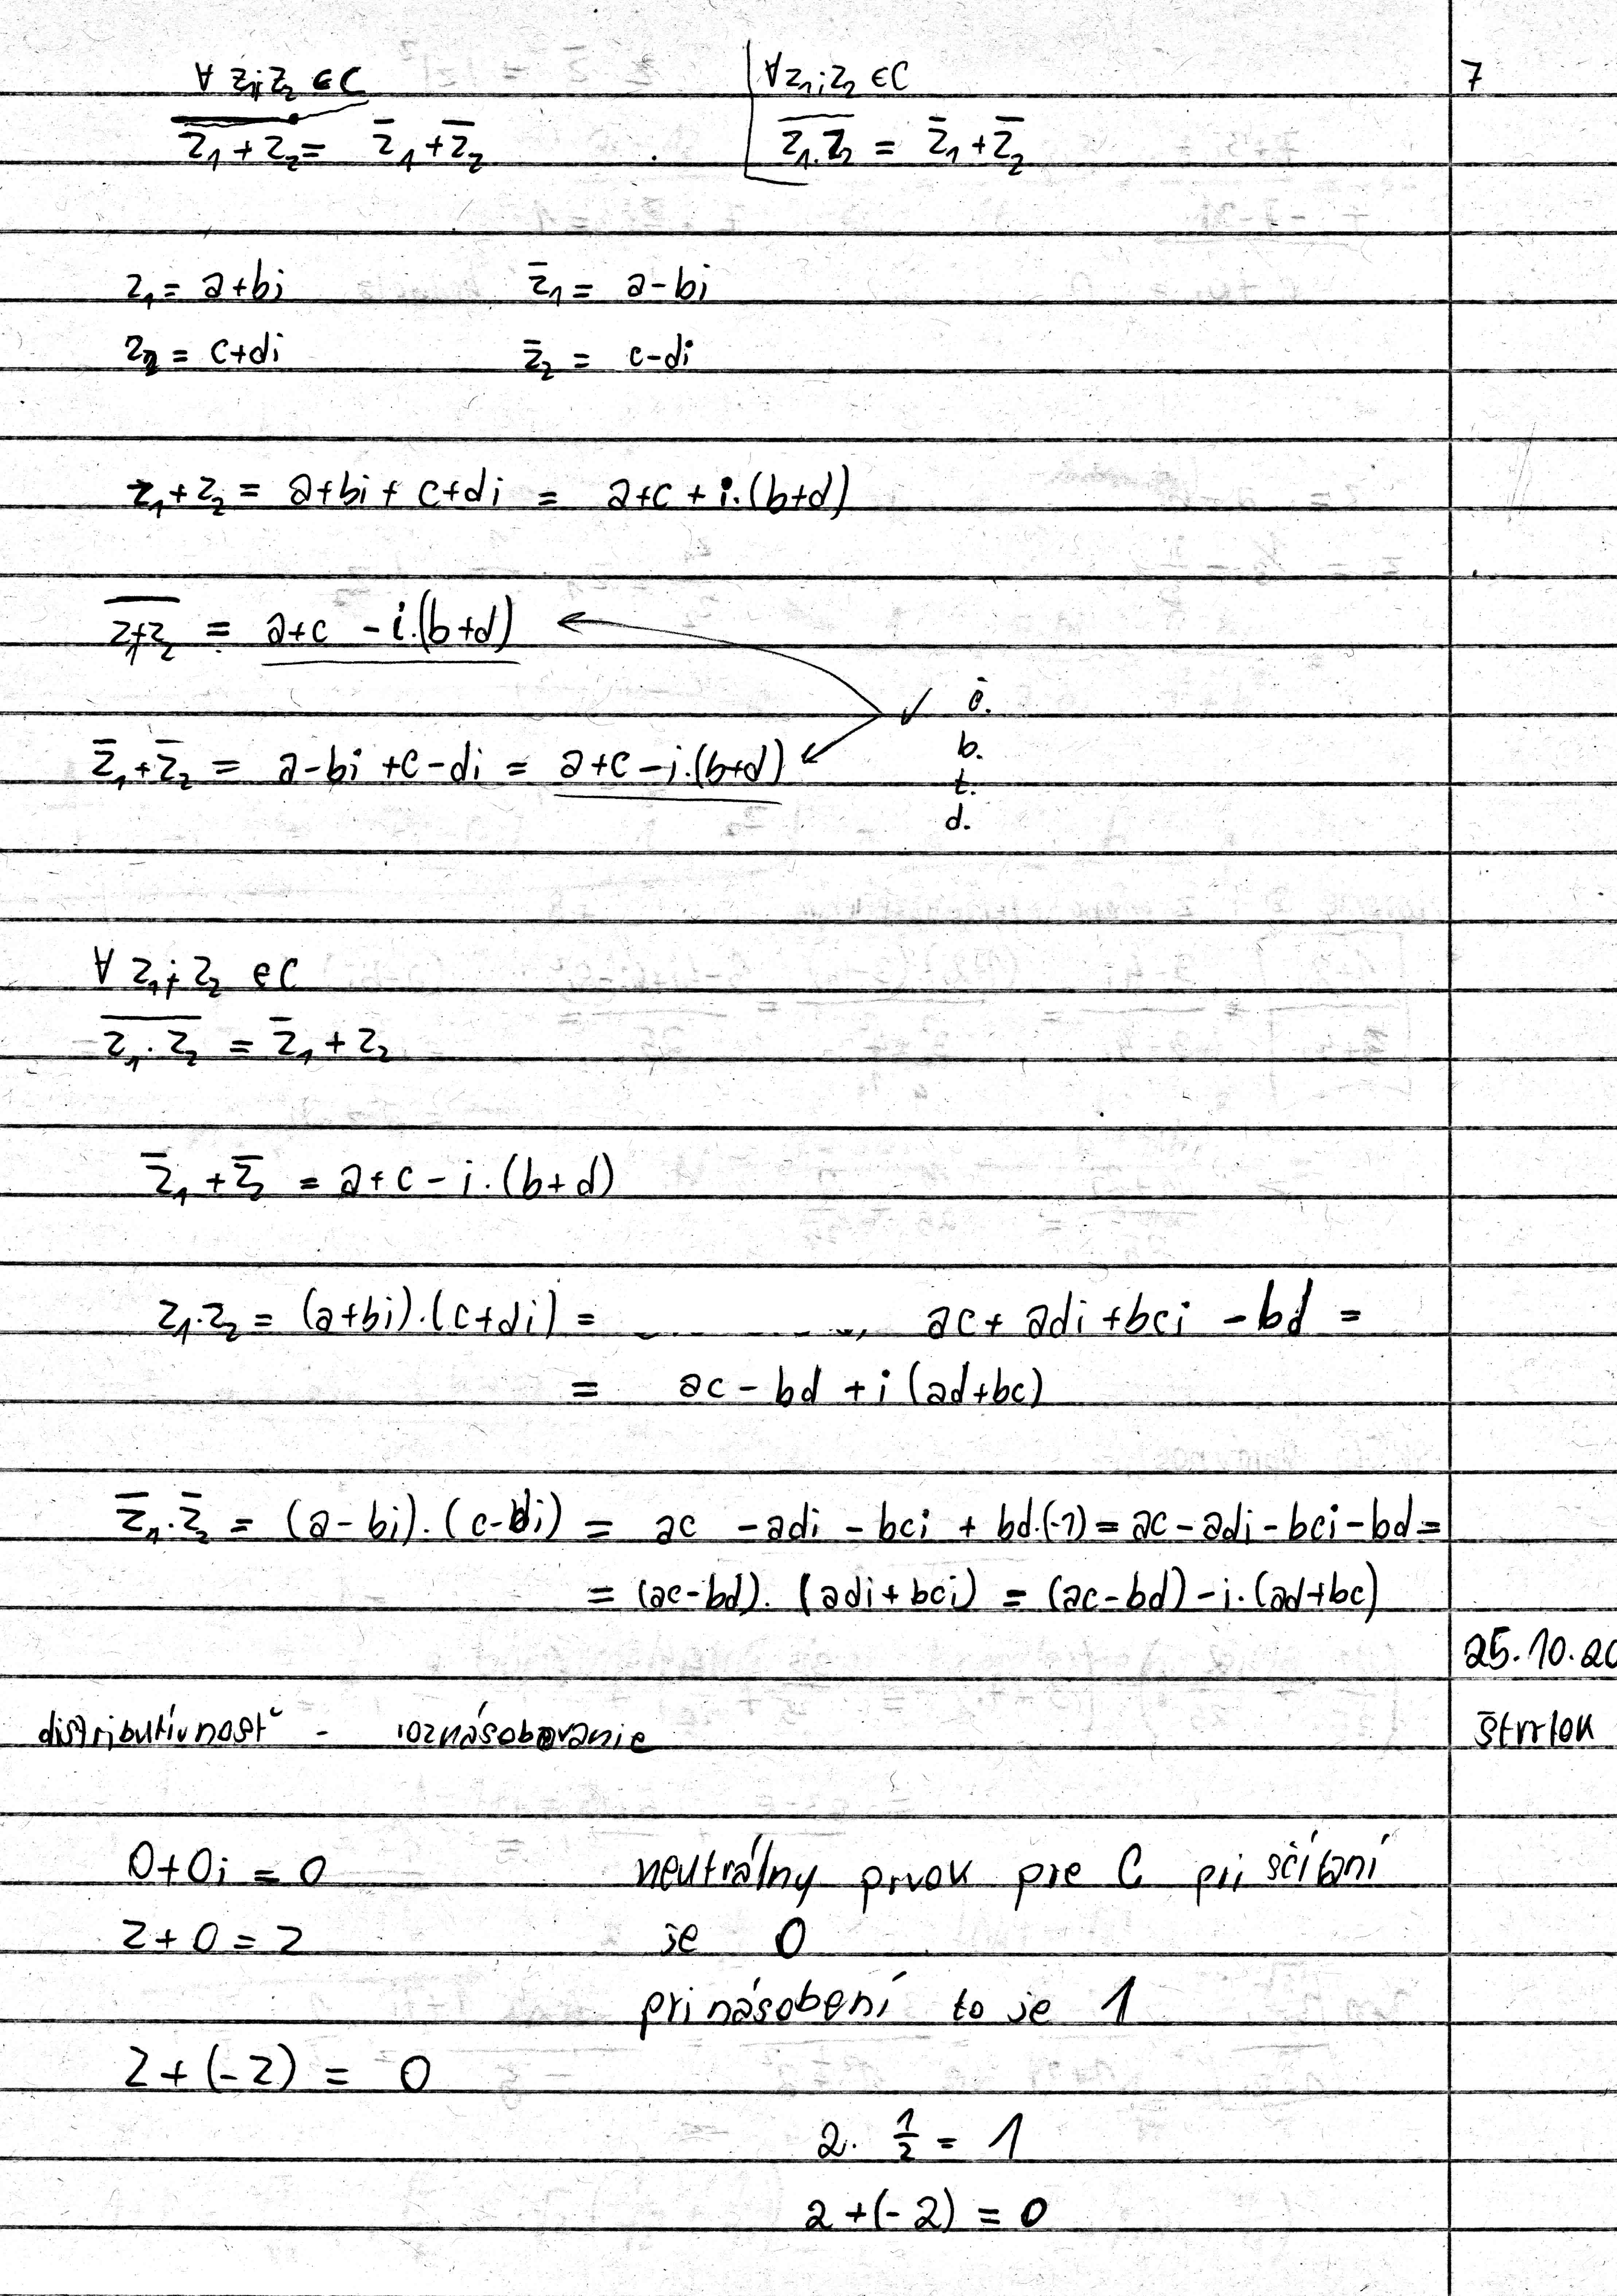 ∀ z₁; z₂ ∈ C
∀ z₁; z₂ ∈ C
7
\overline{z₁ + z₂} = z̄₁ + z̄₂
\overline{z₁ . z₂} = z̄₁ + z̄₂
z₁ = a+bi z̄₁ = a-bi
z₂ = c+di z̄₂ = c-di
z₁ + z₂ = a+bi + c+di = a+c + i.(b+d)
\overline{z₁+z₂} = a+c - i.(b+d)
✓ č.
b.
t.
d.
z̄₁ + z̄₂ = a-bi +c-di = a+c-i.(b+d)
∀ z₁; z₂ ∈ C
\overline{z₁ . z₂} = z̄₁ + z₂
z̄₁ + z̄₂ = a+c - i.(b+d)
z₁.z₂ = (a+bi).(c+di) = ........ ac + adi + bci - bd =
= ac - bd + i (ad+bc)
z̄₁.z̄₂ = (a-bi).(c-di) = ac - adi - bci + bd.(-1) = ac - adi - bci - bd =
= (ac-bd). (adi+bci) = (ac-bd) - i.(ad+bc)
25.10.20
distributívnosť - roznásobovanie
štvrtok
0+0i = 0 neutrálny prvok pre C pri sčítaní
z + 0 = z je 0
pri násobení to je 1
z + (-z) = 0
2. 1/2 = 1
2 + (-2) = 0